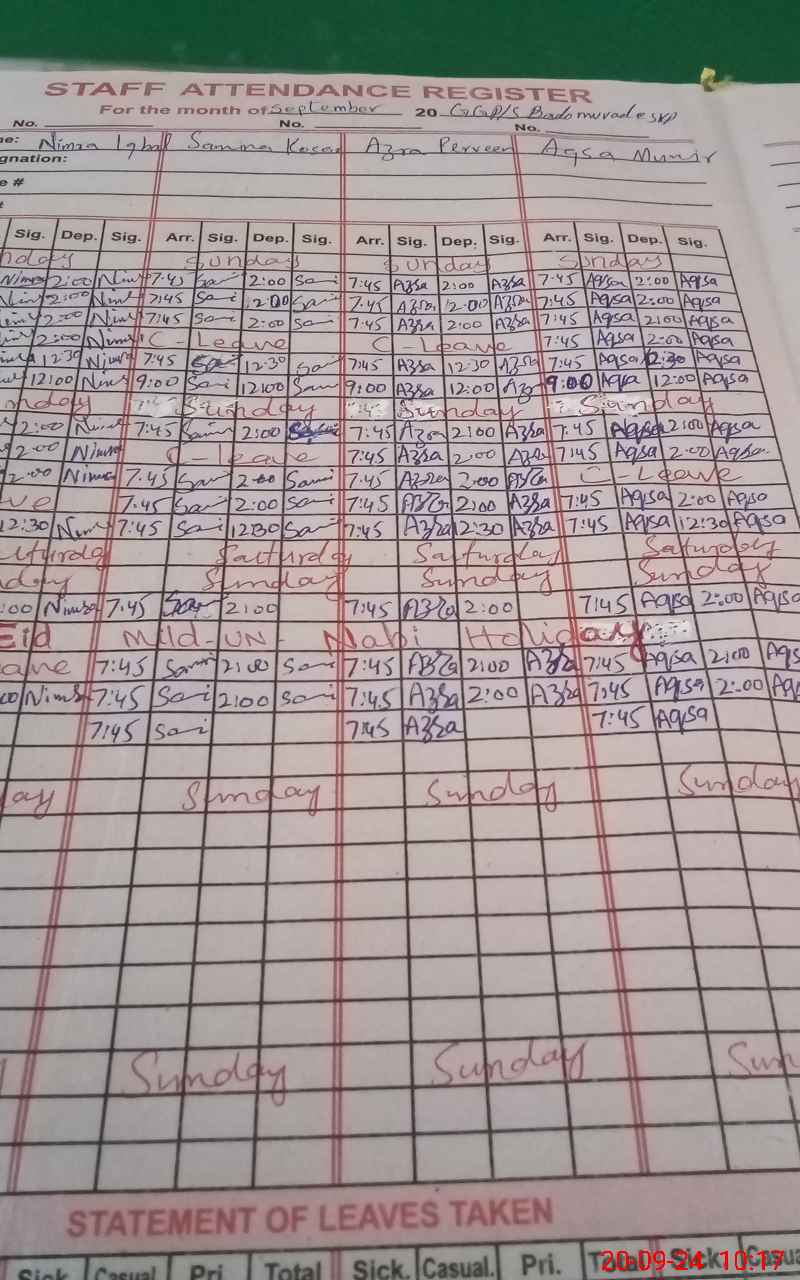 STAFF ATTENDANCE REGISTER
For the month of September 20 GGP/S Badomurade SKP
No. No. No.
me: Nimra Iqbal Samina Kosar Azra Perveen Aqsa Munir
gnation:
e #
Sig. Dep. Sig. Arr. Sig. Dep. Sig. Arr. Sig. Dep. Sig. Arr. Sig. Dep. Sig.
nday Sunday Sunday Sunday
Nimra 2:00 Nim 7:45 Sai 2:00 Sai 7:45 Azra 2:00 Azra 7:45 Aqsa 2:00 Aqsa
Nim 2:00 Nim 7:45 Sai 2:00 Sai 7:45 Azra 2:00 Azra 7:45 Aqsa 2:00 Aqsa
Nim 2:00 Nim 7:45 Sai 2:00 Sai 7:45 Azra 2:00 Azra 7:45 Aqsa 2:00 Aqsa
2:00 Nim C-Leave C-Leave 7:45 Aqsa 2:00 Aqsa
12:30 Nimra 7:45 12:30 Sai 7:45 Azra 12:30 Azra 7:45 Aqsa 12:30 Aqsa
12:00 Nim 9:00 Sai 12:00 Sam 9:00 Azra 12:00 Az 9:00 Aqsa 12:00 Aqsa
nday Sunday Sunday Sunday
2:00 Nim 7:45 Sam 2:00 7:45 Azra 2:00 Azra 7:45 Aqsa 2:00 Aqsa
2:00 Nimra C-leave 7:45 Azra 2:00 Azra 7:45 Aqsa 2:00 Aqsa
2:00 Nimra 7:45 Sai 2:00 Sami 7:45 Azra 2:00 Azra C-Leave
ve 7:45 Sai 2:00 Sai 7:45 Azra 2:00 Azra 7:45 Aqsa 2:00 Aqsa
12:30 Nim 7:45 Sai 12:30 Sai 7:45 Azra 12:30 Azra 7:45 Aqsa 12:30 Aqsa
turda Saturday Saturday Saturday
day Sunday Sunday Sunday
:00 Nimra 7:45 2:00 7:45 Azra 2:00 7:45 Aqsa 2:00 Aqsa
Eid Mild-UN- Nabi Holiday
eave 7:45 Sami 2:00 Sai 7:45 Azra 2:00 Azra 7:45 Aqsa 2:00 Aqs
00 Nimra 7:45 Sai 2:00 Sai 7:45 Azra 2:00 Azra 7:45 Aqsa 2:00 Aq
7:45 Sai 7:45 Azra 7:45 Aqsa
day Sunday Sunday Sunday
Sunday Sunday Sun
STATEMENT OF LEAVES TAKEN
Sick Casual Pri Total Sick. Casual. Pri. Total Sick Casua
20-09-24 10:17